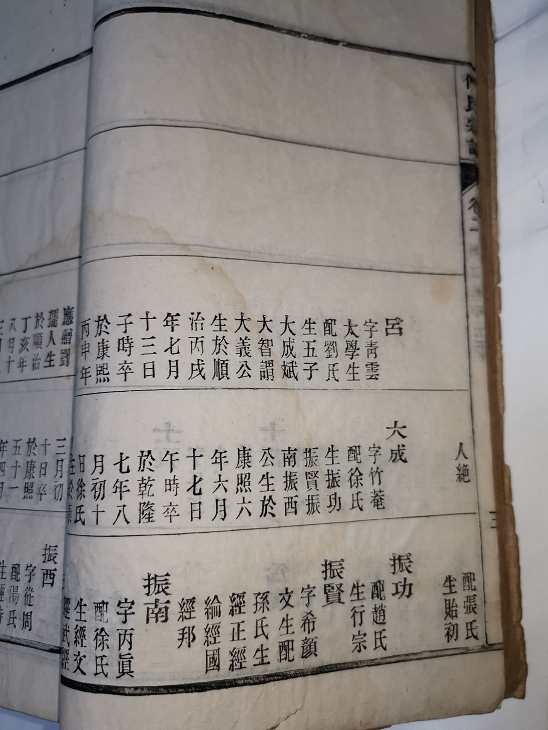 卷二
人絶
配張氏
生貽初
呂
字青雲
太學生
配劉氏
生五子
大成斌
大智謂
大義公
生於順
治丙戌
年七月
十三日
子時卒
於康熙
丙申年
大成
字竹菴
配徐氏
生振功
振賢振
南振西
公生於
康熙六
年六月
十七日
午時卒
於乾隆
七年八
月初十
日徐氏
振功
配趙氏
生行宗
振賢
字希顏
文生配
孫氏生
經正經
綸經國
經邦
振南
字丙眞
配徐氏
生經文
經武經
應麟劉
孺人生
於順治
丁亥年
八月十
三月初
十日卒
於康熙
五十一
年四月
振酉
字從周
配湯氏